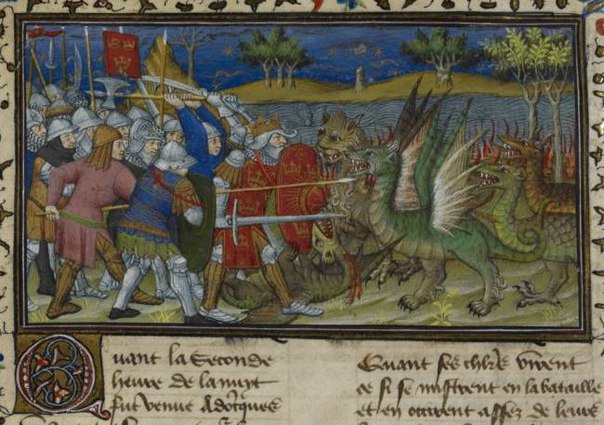 Quant la Seconde
heure de la nuyt
fut venue Adoncques
Quant ses chlrs virent
ce si se mistrent en la bataille
et en occirent assez de leurs